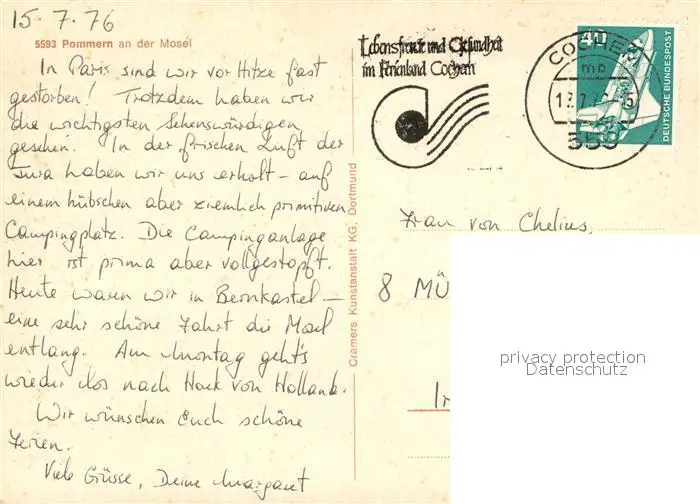 15.7.76
5593 Pommern an der Mosel
In Paris sind wir vor Hitze fast
gestorben! Trotzdem haben wir
die wichtigsten Sehenswürdigen
gesehen. In der frischen Luft der
Jura haben wir uns erholt – auf
einem hübschen aber ziemlich primitiven
Campingplatz. Die Campinganlage
hier ist prima aber vollgestopft.
Heute waren wir in Bernkastel –
eine sehr schöne Fahrt die Mosel
entlang. Am Montag geht's
wieder los nach Hoek van Holland.
Wir wünschen Euch schöne
Ferien.
Viele Grüsse, Deine Margaret
Cramers Kunstanstalt KG, Dortmund
Lebensfreude und Gesundheit
im Ferienland Cochem
COCHEM
mb
559
40
DEUTSCHE BUNDESPOST
Frau von Chelius,
8 MÜ
privacy protection
Datenschutz